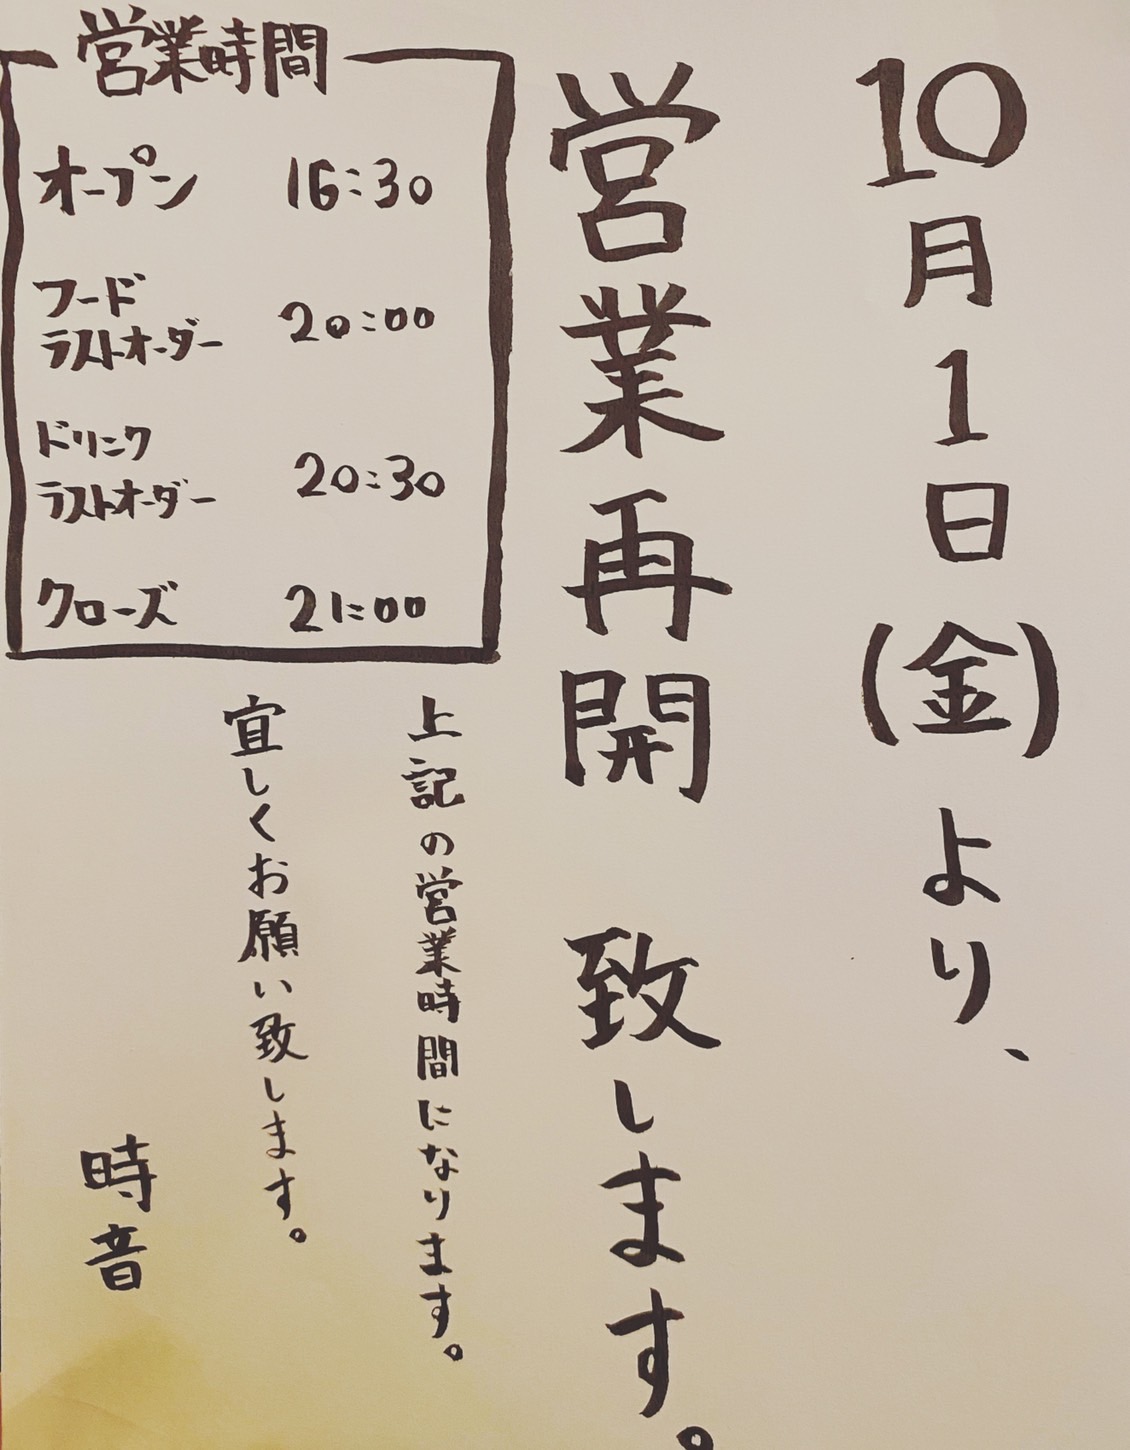 10月1日(金)より、
営業再開 致します。
営業時間
オープン 16:30
フード
ラストオーダー 20:00
ドリンク
ラストオーダー 20:30
クローズ 21:00
上記の営業時間になります。
宜しくお願い致します。
時音